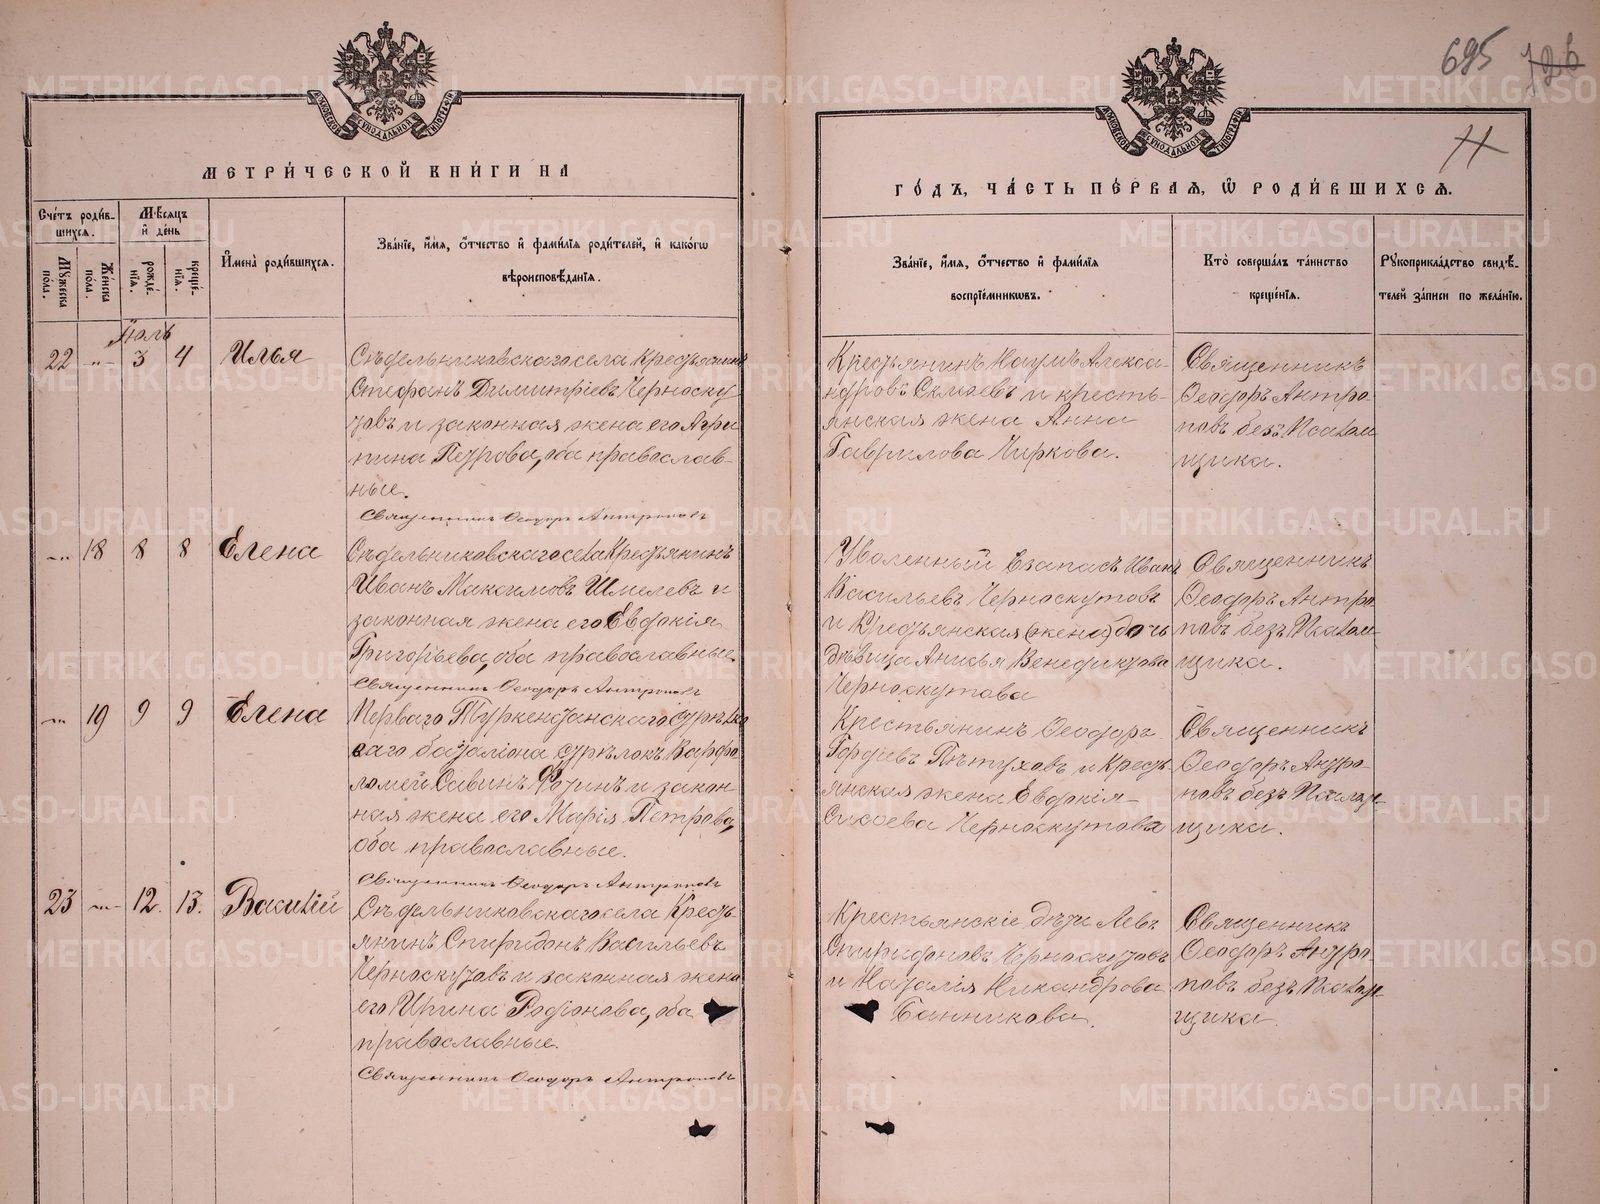 695 726
МЕТРИ́ЧЕСКОЙ КНИ́ГИ НА
Сче́тъ роди́в-
шихсѧ.
Мѣ́сѧцъ
и҆ де́нь
И҆мена̀ роди́вшихсѧ.
Зва́нїе, и҆́мѧ, ѻ҆́тчество и҆ фами́лїѧ роди́телей, и҆ како́гѡ
вѣроисповѣ́данїѧ.
Му́жеска
по́ла.
Же́нска
по́ла.
рожде́-
нїѧ.
креще́-
нїѧ.
Іюль
22 -"- 3 4 Илья
Сѣдельниковскаго села Крестьянинъ
Стефанъ Димитріевъ Черноску
товъ и законная жена его Агри
пина Петрова, оба православ-
ные.
Священникъ Ѳеодоръ Антроповъ
-"- 18 8 8 Елена
Сѣдельниковскаго села Крестьянинъ
Иванъ Максимовъ Шмелевъ и
законная жена его Евдокія
Григорьева, оба православные.
Священникъ Ѳеодоръ Антроповъ
-"- 19 9 9 Елена
Перваго Туркестанскаго стрѣлко
ваго баталіона стрѣлокъ Варфо
ломей Савинъ Фотинъ и закон
ная жена его Марія Петрова,
оба православные.
Священникъ Ѳеодоръ Антроповъ
23 -"- 12. 13. Василій
Сѣдельниковскаго села Кресть
янинъ Спиридонъ Васильевъ
Черноскутовъ и законная жена
его Ирина Родіонова, оба
православные.
Священникъ Ѳеодоръ Антроповъ
ГО́ДЪ, ЧА́СТЬ ПЕ́РВАѦ, Ѽ РОДИ́ВШИХСѦ.
Зва́нїе, и҆́мѧ, ѻ҆́тчество и҆ фами́лїѧ
воспрїе́мникѡвъ.
Кто̀ соверша́лъ та́инство
креще́нїѧ.
Рꙋкоприкла́дство свидѣ́-
телей за́писи по жела́нїю.
Крестьянинъ Наумъ Алекса-
ндровъ и кресть-
янская жена Анна
Гаврилова Чиркова.
Священникъ
Ѳеодоръ Антро
повъ безъ Псалом
щика.
Уволенный въ запасъ Иванъ
Васильевъ Черноскутовъ
и Крестьянская (жена) дочь
дѣвица Анисья Венедиктова
Черноскутова
Священникъ
Ѳеодоръ Антро
повъ безъ Псалом-
щика.
Крестьянинъ Ѳеодоръ
Гордѣевъ Пѣтуховъ и Кресть
янская жена Евдокія
Сисоева Черноскутова
Священникъ
Ѳеодоръ Антро-
повъ безъ Псалом-
щика.
Крестьянскіе дѣти Левъ
Спиридоновъ Черноскутовъ
и Наталія Никандрова
Банникова.
Священникъ
Ѳеодоръ Антро-
повъ безъ Псалом-
щика.